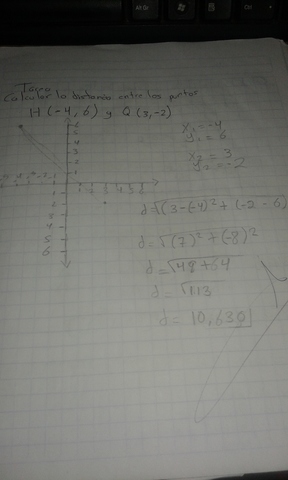 Tarea
Calcular la distancia entre los puntos
H (-4, 6) y Q (3, -2)
x₁ = -4
y₁ = 6
x₂ = 3
y₂ = -2
6
5
4
3
2
1
1 2 3 4 5 6
1
2
3
4
5
6
d=√(3-(-4)² + (-2-6)
d=√(7)² + (-8)²
d=√48+64
d=√113
d= 10,630